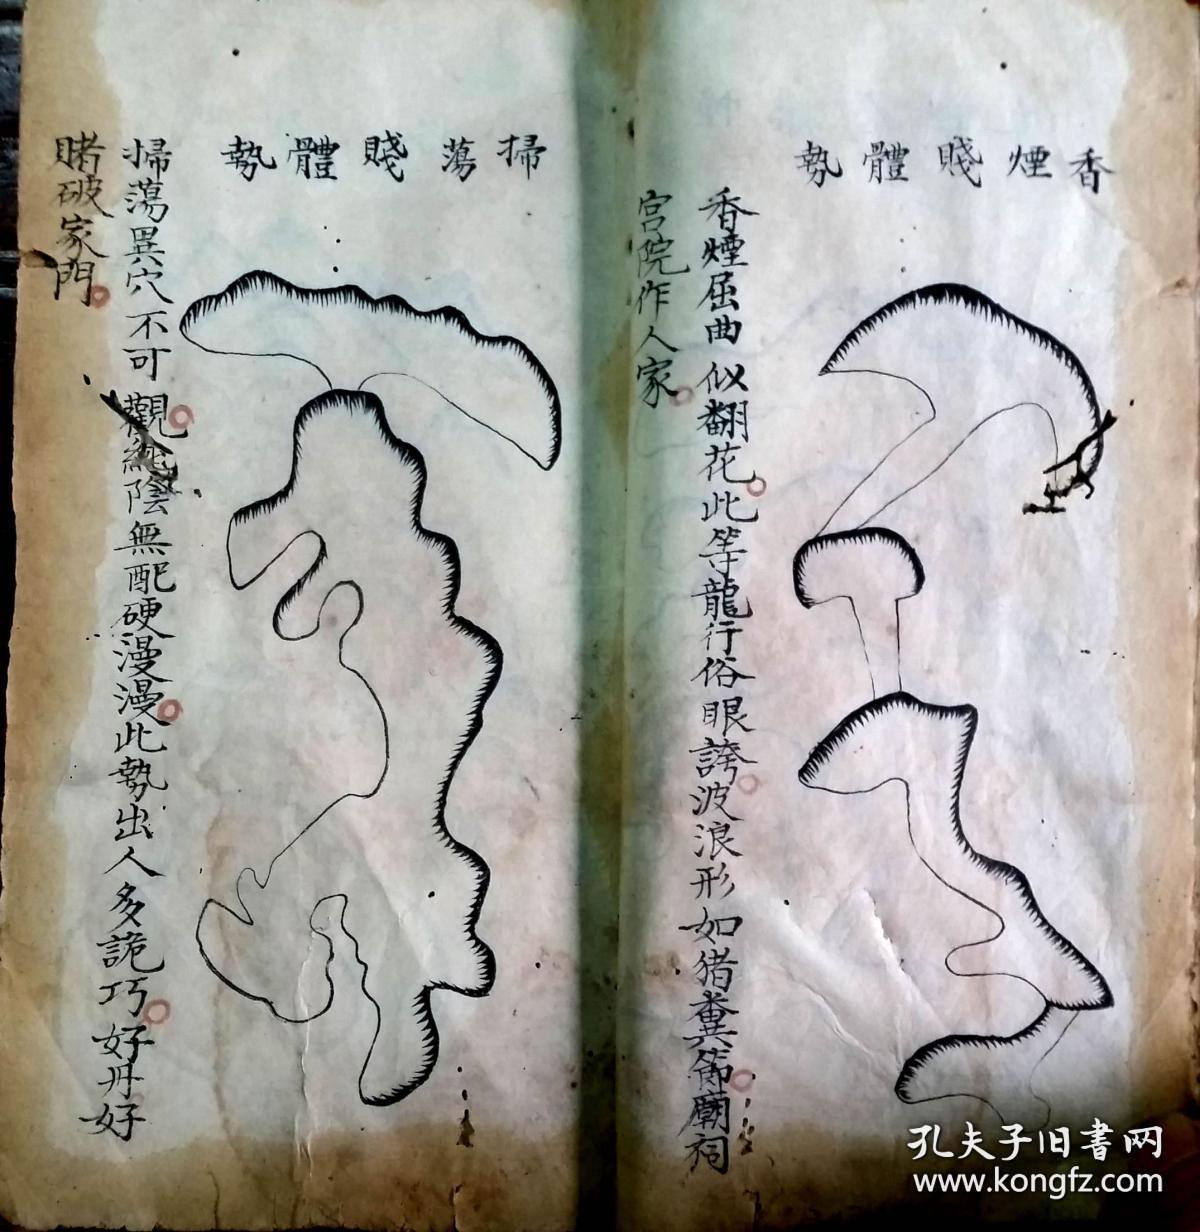 香煙賤體勢
香煙屈曲似翻花此等龍行俗眼誇波浪形如猪糞節廟祠
宫院作人家
掃蕩賤體勢
掃蕩異穴不可觀純陰無配硬漫漫此勢出人多詭巧好丹好
賭破家門
孔夫子旧书网
www.kongfz.com